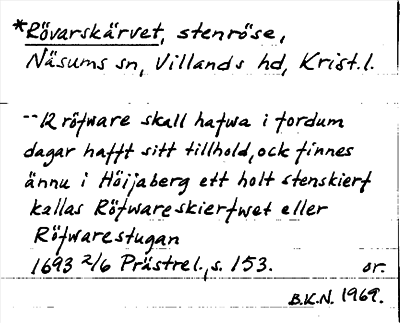 *Rövarskärvet, stenröse,
Näsums sn, Villands hd, Krist.l.
--12 röfware skall hafwa i fordum
dagar hafft sitt tillhold, ock finnes
ännu i Höijaberg ett holt stenskierf
kallas Röfwareskierfwet eller
Röfwarestugan
1693 2/6 Prästrel., s. 153. or.
B.K.N. 1969.